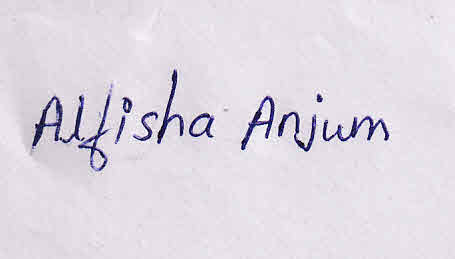 Alfisha Anjum